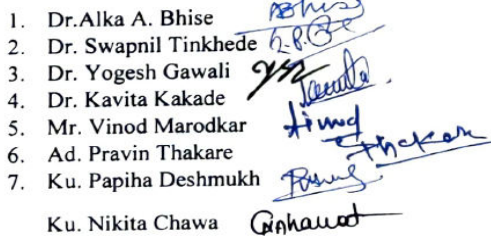 1. Dr.Alka A. Bhise ABhise
2. Dr. Swapnil Tinkhede
3. Dr. Yogesh Gawali
4. Dr. Kavita Kakade
5. Mr. Vinod Marodkar
6. Ad. Pravin Thakare
7. Ku. Papiha Deshmukh
Ku. Nikita Chawa